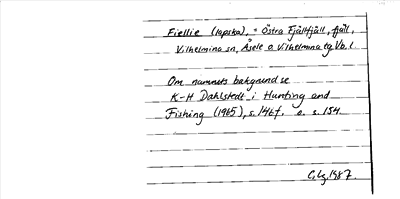 Fiellie (lapska), = Östra Fjällfjäll, fjäll,
Vilhelmina sn, Åsele o Vilhelmina tg Vb. l.
Om namnets bakgrund se
K-H Dahlstedt i Hunting and
Fishing (1965), s. 146f. o. s. 154.
C. Lg. 1987.